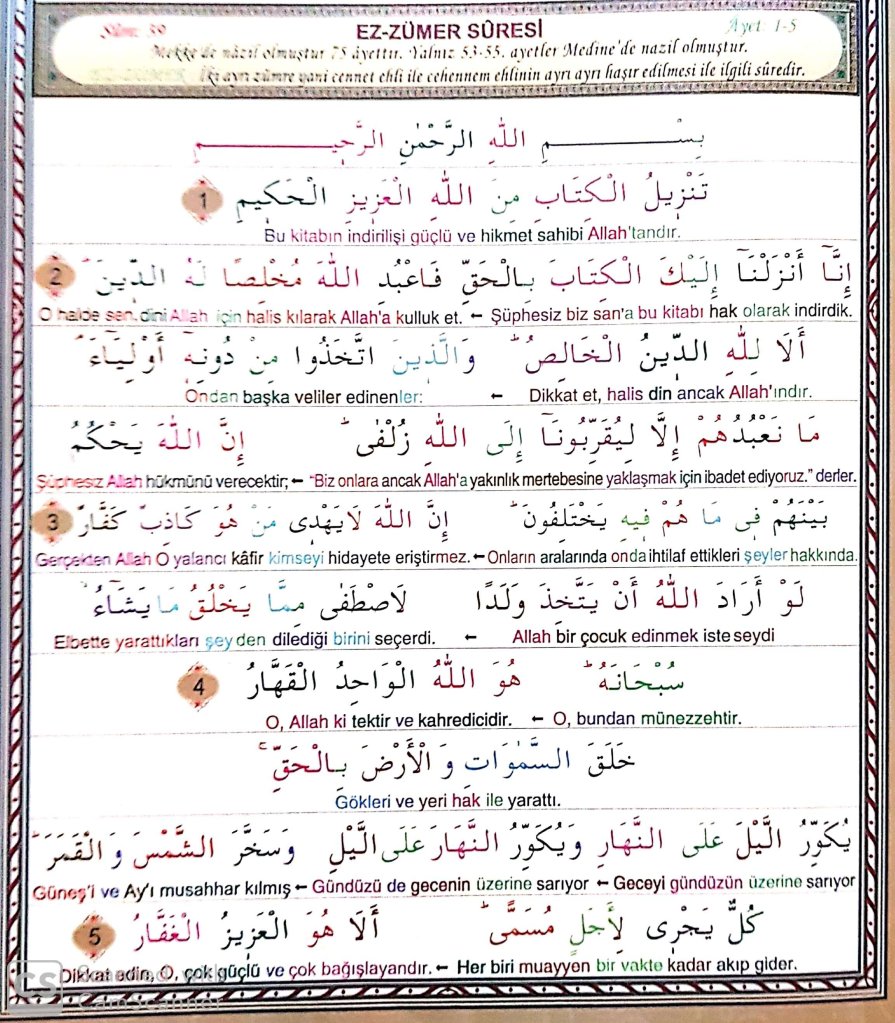 Sûre: 39 EZ-ZÜMER SÛRESİ Âyet: 1-5
Mekke'de nâzil olmuştur 75 âyettir. Yalnız 53-55. ayetler Medine'de nazil olmuştur.
İki ayrı zümre yani cennet ehli ile cehennem ehlinin ayrı ayrı haşır edilmesi ile ilgili sûredir.
بِسْمِ اللهِ الرَّحْمٰنِ الرَّحِيمِ
تَنْزِيلُ الْكِتَابِ مِنَ اللهِ الْعَزِيزِ الْحَكِيمِ 1
Bu kitabın indirilişi güçlü ve hikmet sahibi Allah'tandır.
اِنَّٓا اَنْزَلْنَٓا اِلَيْكَ الْكِتَابَ بِالْحَقِّ فَاعْبُدِ اللهَ مُخْلِصًا لَهُ الدِّينَ 2
O halde sen, dini Allah için halis kılarak Allah'a kulluk et. ← Şüphesiz biz san'a bu kitabı hak olarak indirdik.
اَلَا لِلّٰهِ الدِّينُ الْخَالِصُ وَالَّذِينَ اتَّخَذُوا مِنْ دُونِهِٓ اَوْلِيَٓاءَ
Ondan başka veliler edinenler: ← Dikkat et, halis din ancak Allah'ındır.
مَا نَعْبُدُهُمْ اِلَّا لِيُقَرِّبُونَٓا اِلَى اللهِ زُلْفٰى اِنَّ اللهَ يَحْكُمُ
Şüphesiz Allah hükmünü verecektir; ← "Biz onlara ancak Allah'a yakınlık mertebesine yaklaşmak için ibadet ediyoruz." derler.
بَيْنَهُمْ فِى مَا هُمْ فِيهِ يَخْتَلِفُونَ اِنَّ اللهَ لَايَهْدِى مَنْ هُوَ كَاذِبٌ كَفَّارٌ 3
Gerçekten Allah O yalancı kâfir kimseyi hidayete eriştirmez. ← Onların aralarında onda ihtilaf ettikleri şeyler hakkında.
لَوْ اَرَادَ اللهُ اَنْ يَتَّخِذَ وَلَدًا لَاصْطَفٰى مِمَّا يَخْلُقُ مَا يَشَٓاءُ
Elbette yarattıkları şey den dilediği birini seçerdi. ← Allah bir çocuk edinmek iste seydi
سُبْحَانَهُ هُوَ اللهُ الْوَاحِدُ الْقَهَّارُ 4
O, Allah ki tektir ve kahredicidir. ← O, bundan münezzehtir.
خَلَقَ السَّمٰوَاتِ وَ الْاَرْضَ بِالْحَقِّ
Gökleri ve yeri hak ile yarattı.
يُكَوِّرُ الَّيْلَ عَلَى النَّهَارِ وَيُكَوِّرُ النَّهَارَ عَلَى الَّيْلِ وَسَخَّرَ الشَّمْسَ وَ الْقَمَرَ
Güneş'i ve Ay'ı musahhar kılmış ← Gündüzü de gecenin üzerine sarıyor ← Geceyi gündüzün üzerine sarıyor
كُلٌّ يَجْرِى لِاَجَلٍ مُسَمًّى اَلَا هُوَ الْعَزِيزُ الْغَفَّارُ 5
Dikkat edin, O, çok güçlü ve çok bağışlayandır. ← Her biri muayyen bir vakte kadar akıp gider.
CS